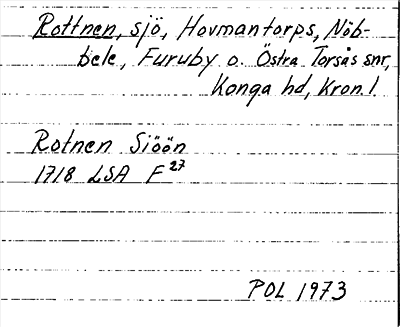 Rottnen, sjö, Hovmantorps, Nöb-
bele, Furuby o. Östra Torsås snr,
Konga hd, Kron. l.
Rotnen Siöön
1718 LSA F 27
POL 1973